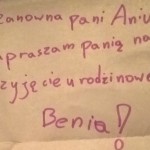 zanowna pani Aniu
apraszam panią na
zyjęcie urodzinowe
Benia!